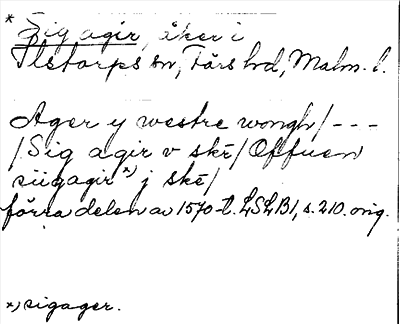 * Sig agir, åker i
Ilstorps sn, Färs hd, Malm. l.
Ager y westre wongh/---
/Sig agir v skē/Offuen
siigagir *) j skē/
förra delen av 1570-t. LSLB1, s. 210. orig.
*) sigager.